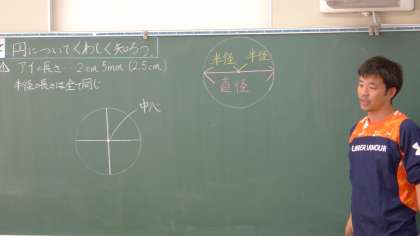 円についてくわしく知ろう。
アイの長さ…2cm5mm(2.5cm)
半径の長さは全て同じ
中心
半径 半径
直径
UNDER ARMOUR